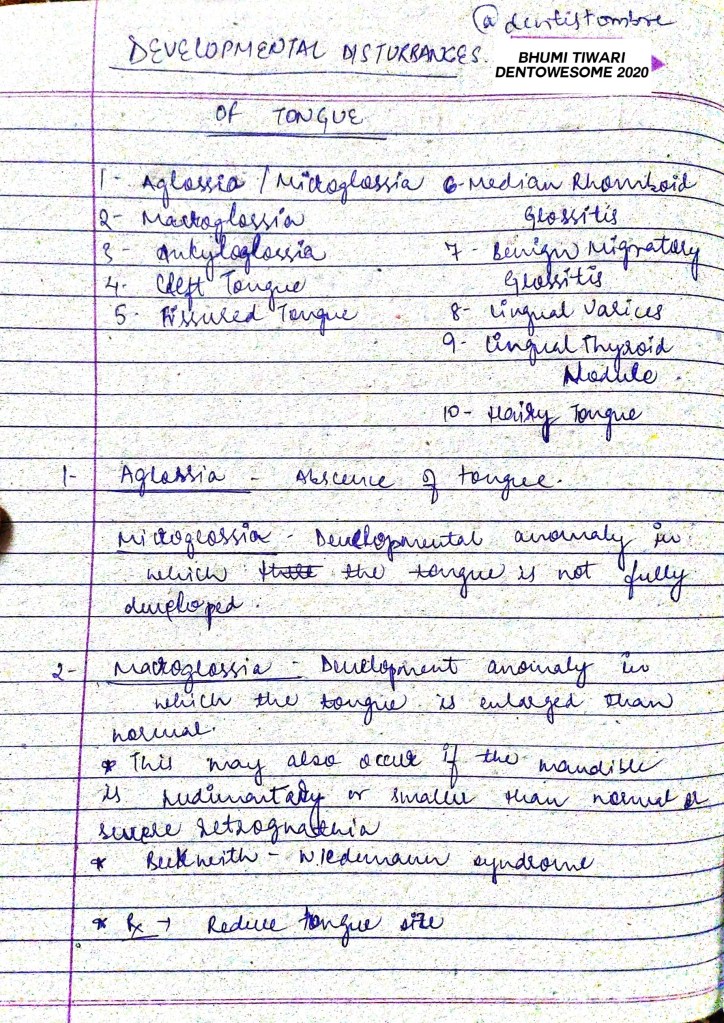 @dentistombre
BHUMI TIWARI
DENTOWESOME 2020
DEVELOPMENTAL DISTURBANCES
OF TONGUE
1- Aglossia / Microglossia
2- Macroglossia
3- Ankyloglossia
4- Cleft Tongue
5- Fissured Tongue
6- Median Rhomboid
Glossitis
7- Benign Migratory
Glossitis
8- Lingual Varices
9- Lingual Thyroid
Nodule.
10- Hairy Tongue
1- Aglossia - Absence of tongue.
Microglossia - Developmental anomaly in
which the tongue is not fully
developed.
2- Macroglossia - Development anomaly in
which the tongue is enlarged than
normal.
* This may also occur if the mandible
is rudimentary or smaller than normal or
severe retrognathia
* Beckwith - Wiedemann syndrome
* Rx → Reduce tongue size